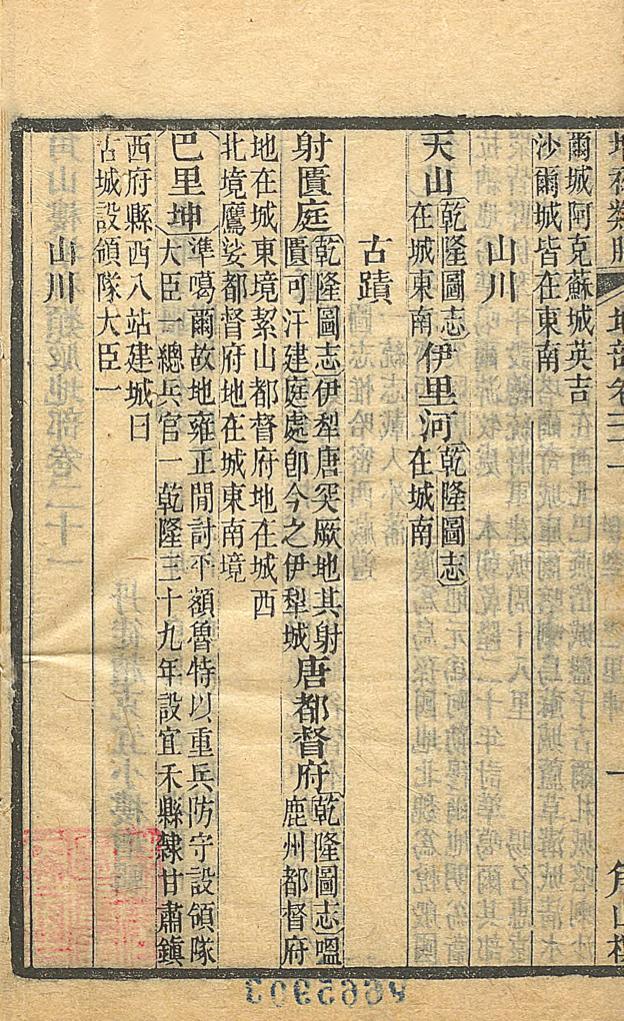 增補類腋 地部卷 一 角山樓
爾城阿克蘇城英吉
沙爾城皆在東南
山川
天山
乾隆圖志
在城東南
伊里河
乾隆圖志
在城南
古蹟
射匱庭
乾隆圖志伊犂唐突厥地其射
匱可汗建庭處卽今之伊犂城
唐都督府
乾隆圖志嗢
鹿州都督府
地在城東境絜山都督府地在城西
北境鷹娑都督府地在城東南境
巴里坤
準噶爾故地雍正閒討平額魯特以重兵防守設領隊
大臣一總兵官一乾隆三十九年設宜禾縣隸甘肅鎮
西府縣西八站建城曰
古城設領隊大臣一
山川